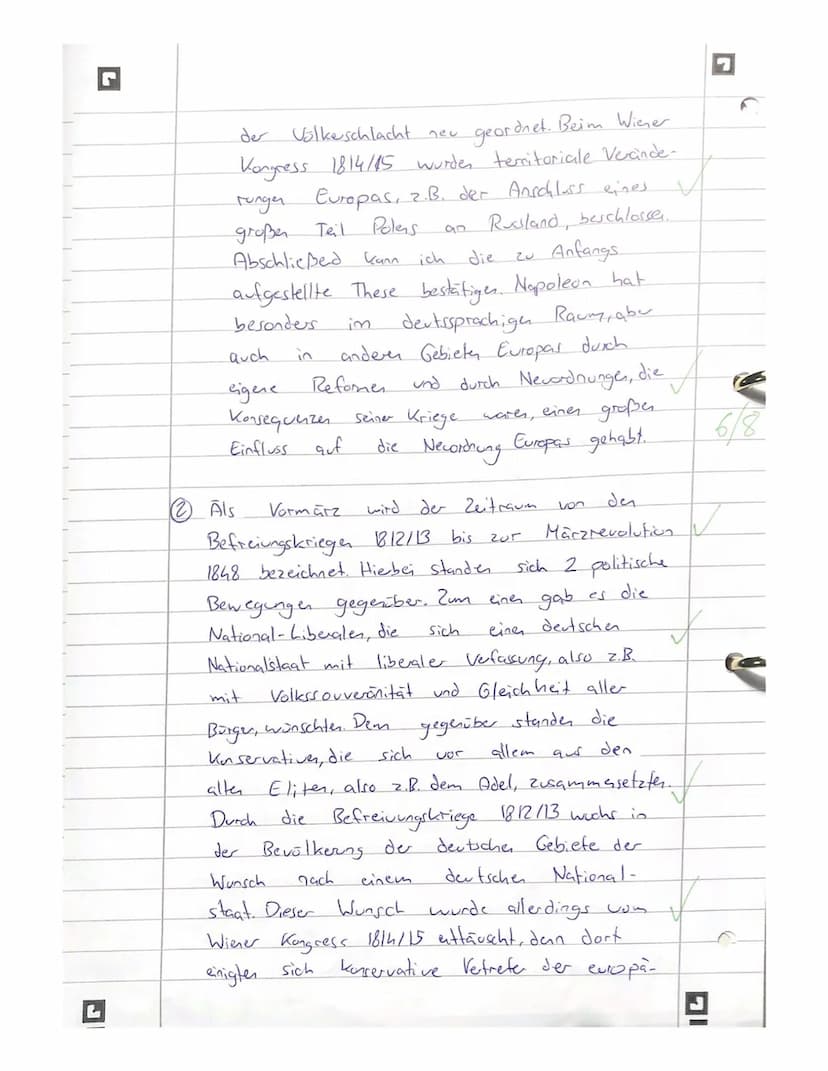 der Völkerschlacht neu geordnet. Beim Wiener
Kongress 1814/15 wurden territoriale Verände-
rungen Europas, z.B. der Anschluss eines
großen Teil Polens an Russland, beschlossen.
Abschließed kann ich die zu Anfangs
aufgestellte These bestätigen. Napoleon hat
besonders im deutssprachigen Raum, aber
auch in anderen Gebieten Europas durch
eigene Reformen und durch Neuordnungen, die
Konsequenzen seiner Kriege waren, einen großen
Einfluss auf die Neuordnung Europas gehabt.
6/8
② Als Vormärz wird der Zeitraum von den
Befreiungskriegen 1812/13 bis zur Märzrevolution
1848 bezeichnet. Hierbei standen sich 2 politische
Bewegungen gegenüber. Zum einen gab es die
National-Liberalen, die sich einen deutschen
Nationalstaat mit liberaler Verfassung, also z.B.
mit Volkssouveränität und Gleichheit aller
Bürger, wünschten. Dem gegenüber standen die
Konservativen, die sich vor allem aus den
alten Eliten, also z.B. dem Adel, zusammensetzten.
Durch die Befreiungskriege 1812/13 wuchs in
der Bevölkerung der deutschen Gebiete der
Wunsch nach einem deutschen National-
staat. Dieser Wunsch wurde allerdings vom
Wiener Kongress 1814/15 enttäuscht, denn dort
einigten sich konservative Vertreter der europä-